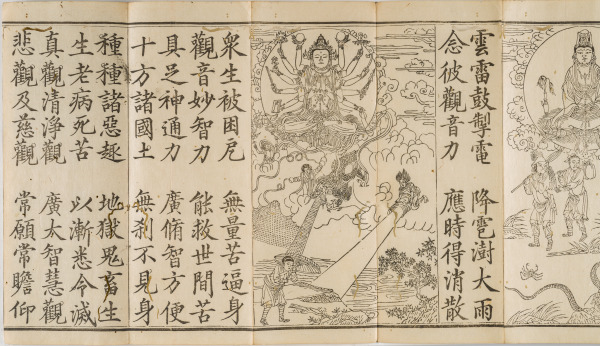 雲雷鼓掣電 降雹澍大雨
念彼觀音力 應時得消散
衆生被困厄 無量苦逼身
觀音妙智力 能救世間苦
具足神通力 廣脩智方便
十方諸國土 無刹不見身
種種諸惡趣 地獄鬼畜生
生老病死苦 以漸悉令滅
真觀清淨觀 廣大智慧觀
悲觀及慈觀 常願常瞻仰